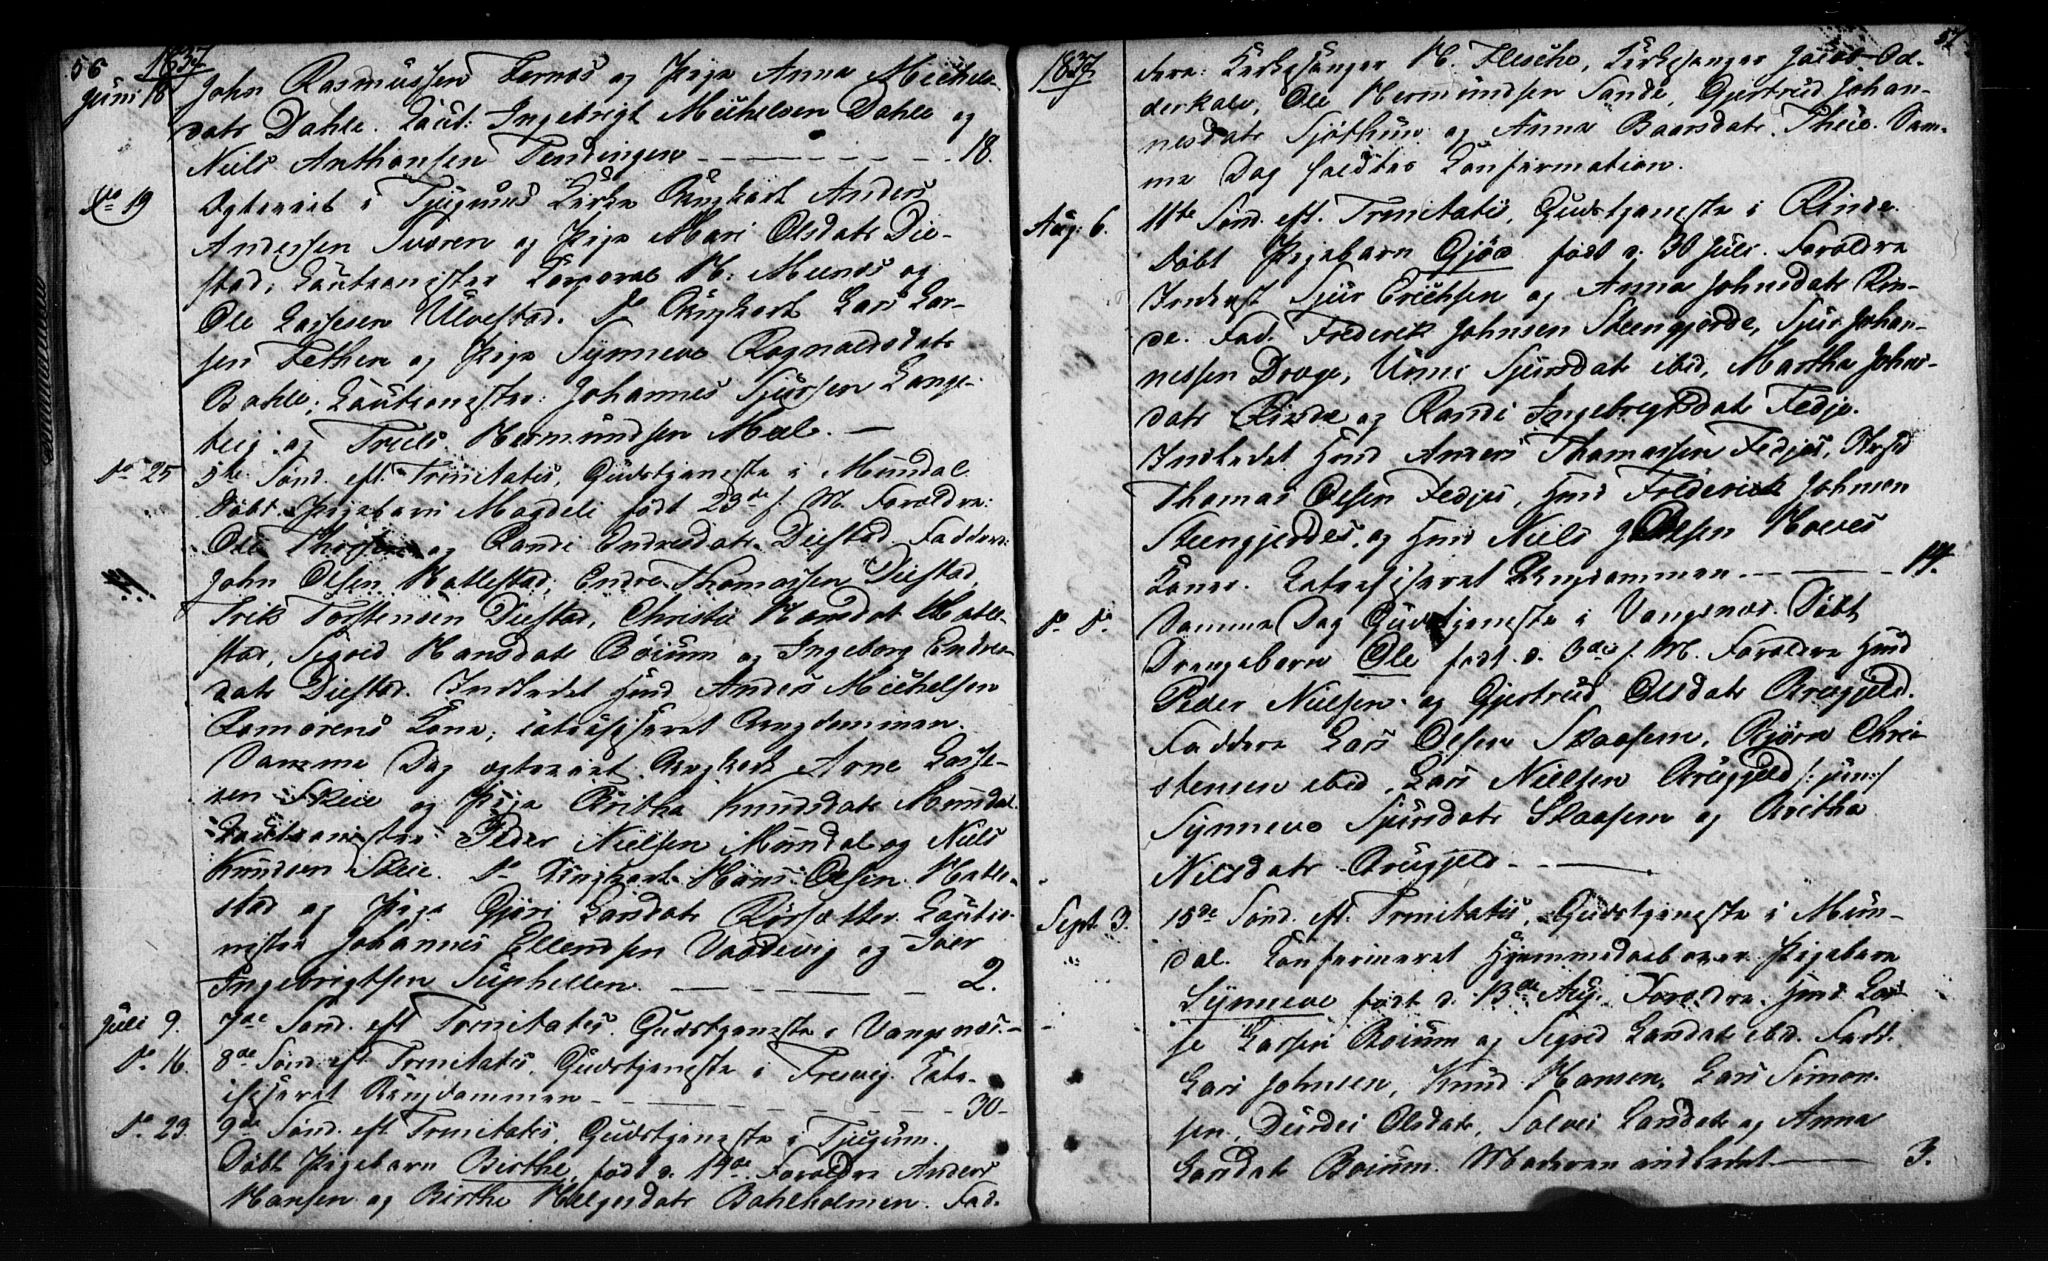 56 1837
Juni 18 John Rasmussen Fernæs og Pige Anna Michels-
datr Dahle. Caut: Ingebrigt Michelsen Dahle og
Niels Anthonsen Tendingen — 18.
do 19 Ogteviet i Tjugums Kirke Ungkarl Anders
Andersen Tværen og Pige Mari Olsdatr Die-
stad, Cautionister Corporal M. Meenæs og
Ole Lassesen Ulvestad. do Ungkarl Lars Lar-
sen Fethen og Pige Synneve Ragnaldsdatr
Bahle, Cautionister: Johannes Sjursen Lange-
teig og Truls Hermundsen Mæl. —
do 25 5te Sønd. eft. Trinitatis, Gudstjeneste i Mundal
Døbt Pigebarn Magdeli født 23de f. M. Forældre:
Ole Thorsen og Randi Endresdatr Diestad. Faddere:
John Olsen Hatlestad, Endre Thomassen Diestad,
Erik Torstensen Diestad, Christie Hansdatr Hatle-
stad, Sigrid Hansdatr Bøium og Ingeborg Endres-
datr Diestad. Indledet Gmd Anders Michelsen
Romørens Kone, catechiseret Ungdommen.
Samme Dag ogteviet Ungkarl Arne Lasse-
sen Skeie og Pige Britha Knudsdatr Mundal
Cautionister Peder Nielsen Mundal og Niels
Knudsen Skeie. do Ungkarl Hans Olsen Hatle-
stad og Pige Gjøri Larsdatr Tørsætter. Cautio-
nister Johannes Ellendsen Vardevig og Iver
Ingebrigtsen Suphellen. — 2.
Juli 9. 7de Sønd. eft Trinitatis. Gudstjeneste i Vangsnæs. —
do 16. 8de Sønd: eft Trinitatis, Gudstjeneste i Fresvig. Cate-
chiseret Ungdommen — 30 —
do 23. 9de Sønd. eft Trinitatis, Gudstjeneste i Tjugum.
Døbt Pigebarn Birthe, født d. 14de Forældre Anders
Hansen og Birthe Helgesdatr Bahleholmen. Fad-
57
1837 dere: Kirkesanger M. Flesche, Kirkesanger Jacob Od-
derkalv, Ole Hermundsen Sande, Gjertrud Johan-
nesdatr Sjøthun og Anna Baarsdatr Thue. Sam-
me Dag holdtes Confirmation.
Aug: 6. 11te Sønd. eft. Trinitatis, Gudstjeneste i Rinde
Døbt Pigebarn Gjøe født d. 30 Juli. Forældre
Inderst Sjur Erichsen og Anna Johnsdatr Rin-
de. Fad. Frederik Johnsen Steengjerde, Sjur Johan-
nessen Drage, Unni Sjursdatr ibid, Martha Johns-
datr Rinde og Randi Ingebrigtsdatr Fedje.
Indledet Gmd Anders Thomassen Fedjes,
Thomas Olsen Fedjes, Gmd Frederik Johnsen
Steengjerdes, og Gmd Niels Olsen Hoves
Koner. Catechiseret Ungdommen — 14.
do do Samme Dag Gudstjeneste i Vangsnæs. Døbt
Drengebarn Ole født d. 3die f. M. Forældre Gmd
Peder Nielsen og Gjertrud Olsdatr Brugjeld.
Faddere Lars Olsen Skaasem, Bjørn Chri-
stensen ibid, Lars Nielsen Brugjeld /:jun:/
Synneve Sjursdatr Skaasem og Britha
Nilsdatr Brugjeld. —
Sept. 3. 15de Sønd. eft. Trinitatis, Gudstjeneste i Mun-
dal. Confirmeret Hjemmedaaben over Pigebarn
Synneve født d. 13de Aug. Forældre Gmd Las-
se Larsen Bøium og Sigrid Larsdatr ibd. Fadd.
Lars Johnsen, Knud Hansen, Lars Simon-
sen, Durdei Olsdatr, Solvei Larsdatr og Anna
Larsdatr Bøium. Moderen indledet — 3.